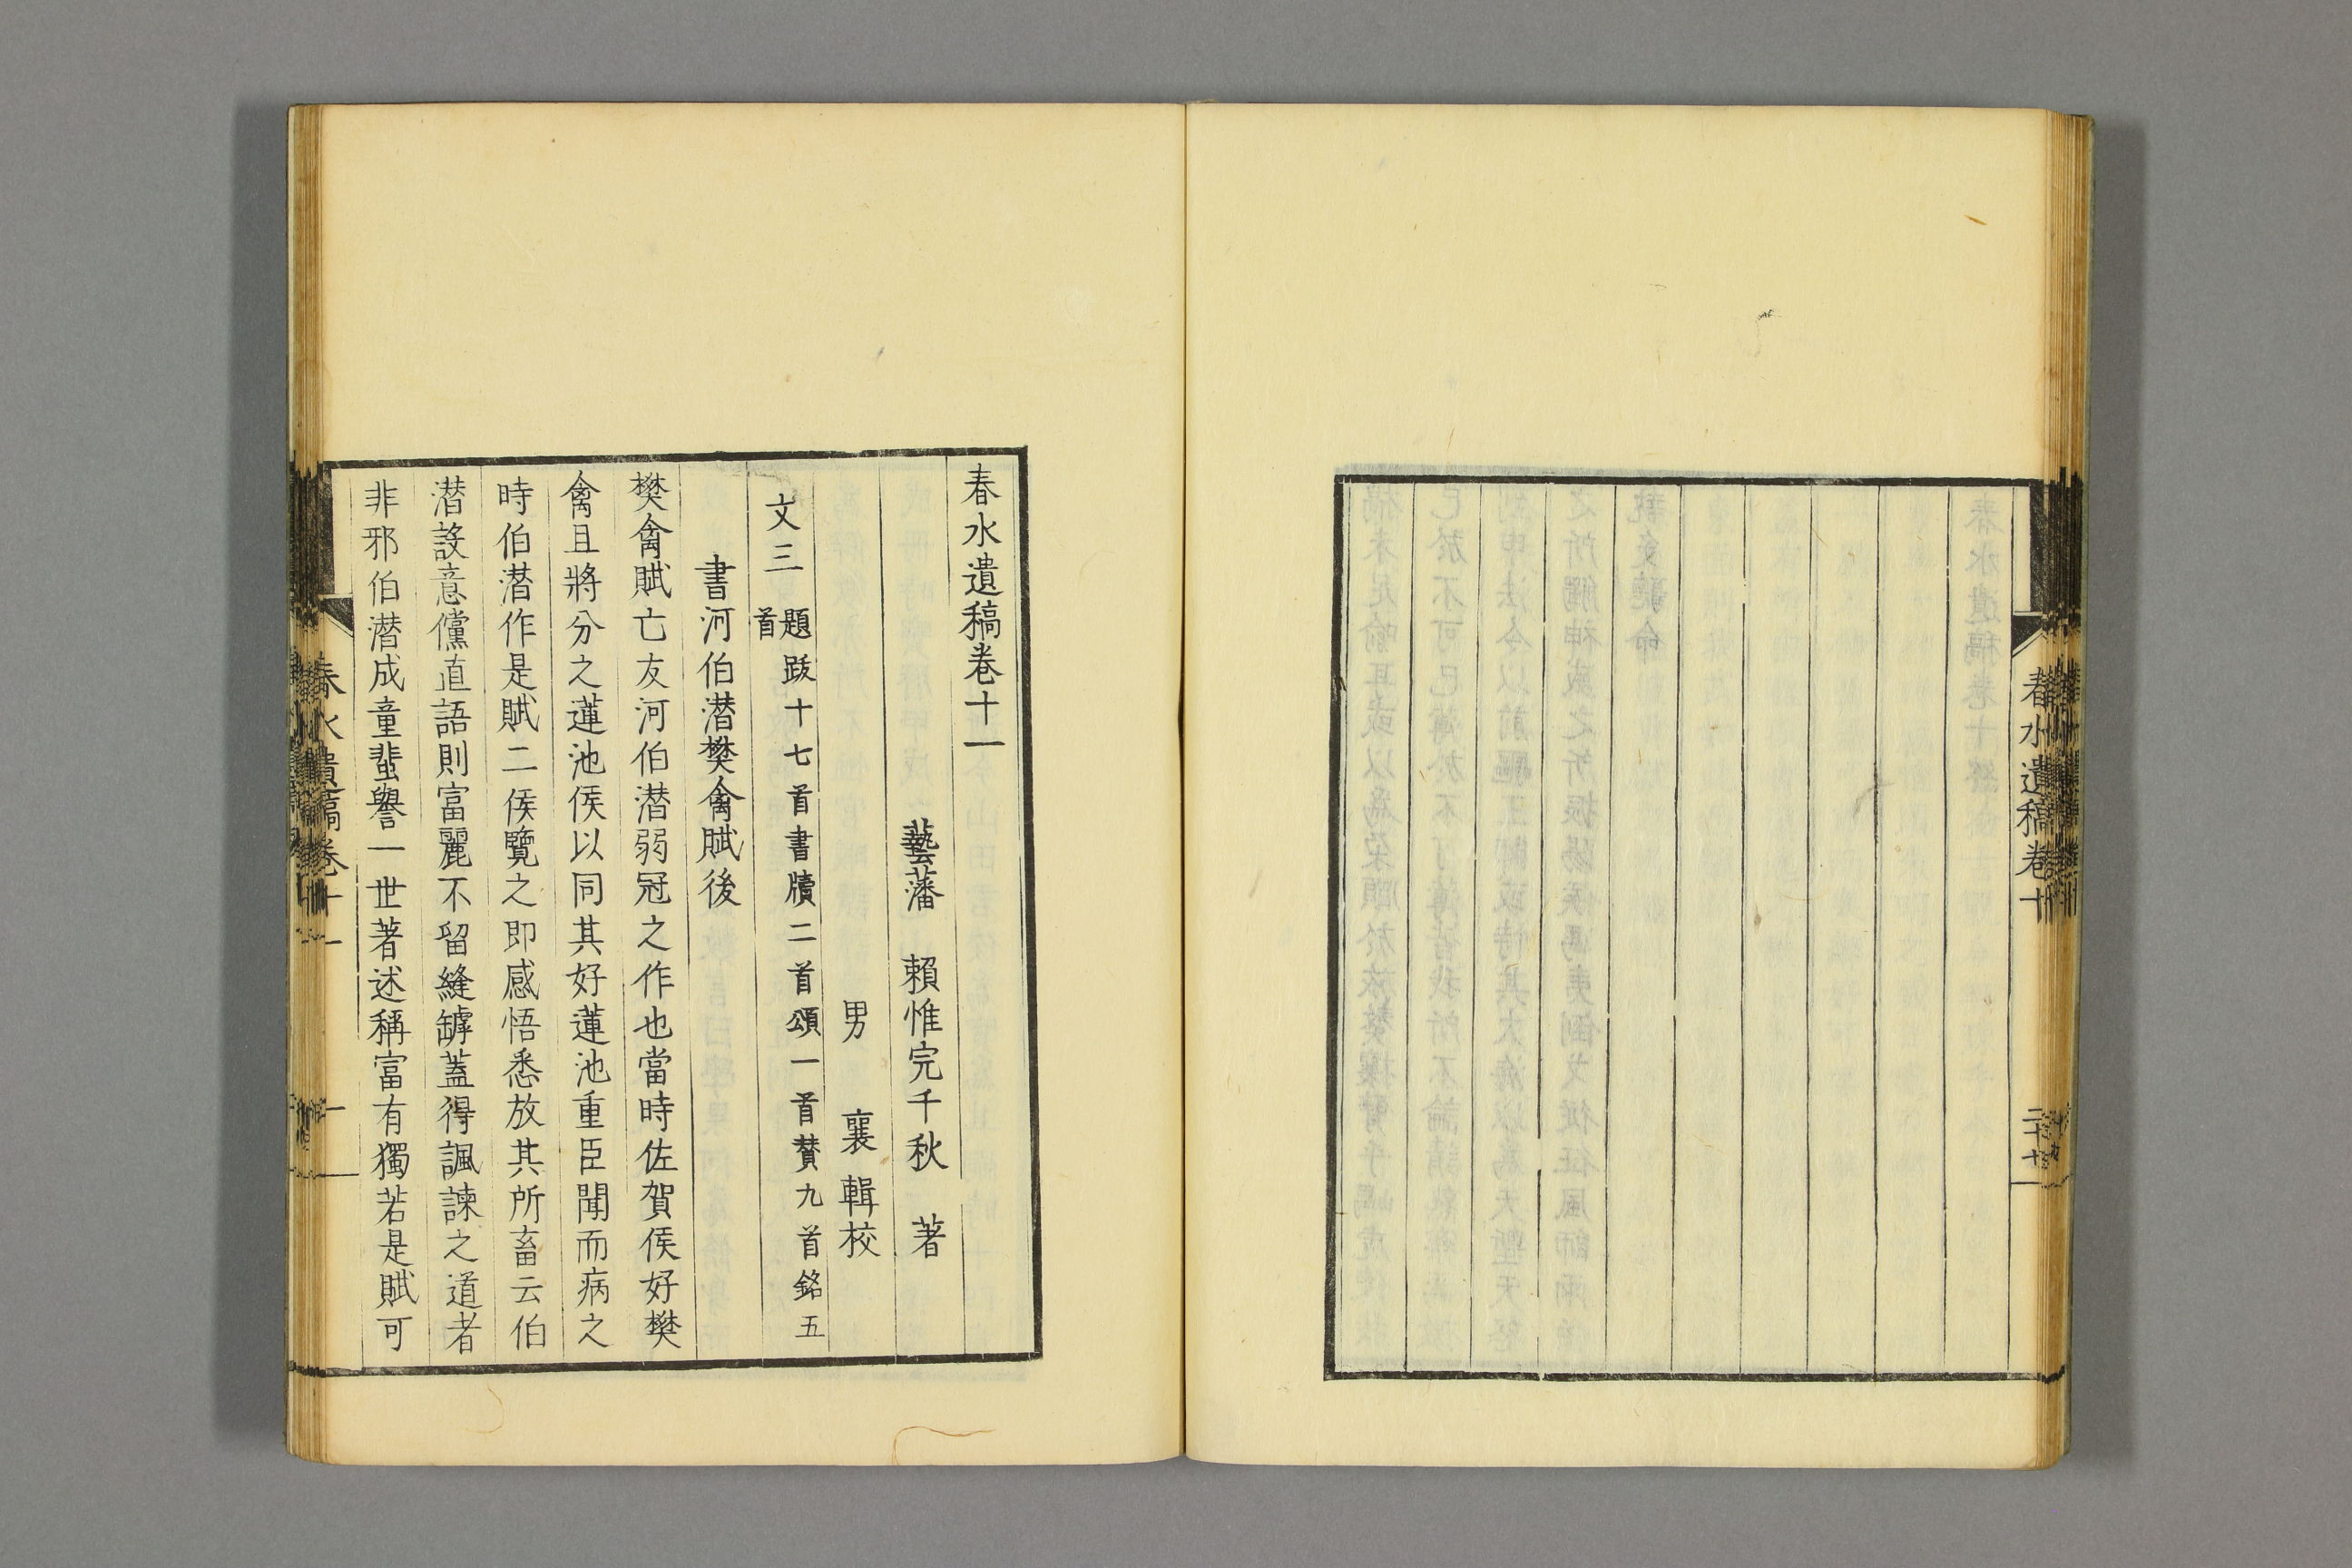 春水遺稿卷十
春水遺稿卷十一
藝藩　賴惟完千秋　著
男　襄　輯校
文三　題跋十七首書牘二首頌一首贊九首銘五
首
書河伯潜樊禽賦後
樊禽賦亡友河伯潜弱冠之作也當時佐賀侯好樊
禽且將分之蓮池侯以同其好蓮池重臣聞而病之
時伯潜作是賦二侯覽之即感悟悉放其所畜云伯
潜設意儻直語則富麗不留縫罅蓋得諷諫之道者
非邪伯潜成童蜚譽一世著述稱富有獨若是賦可
春水遺稿卷十一
一